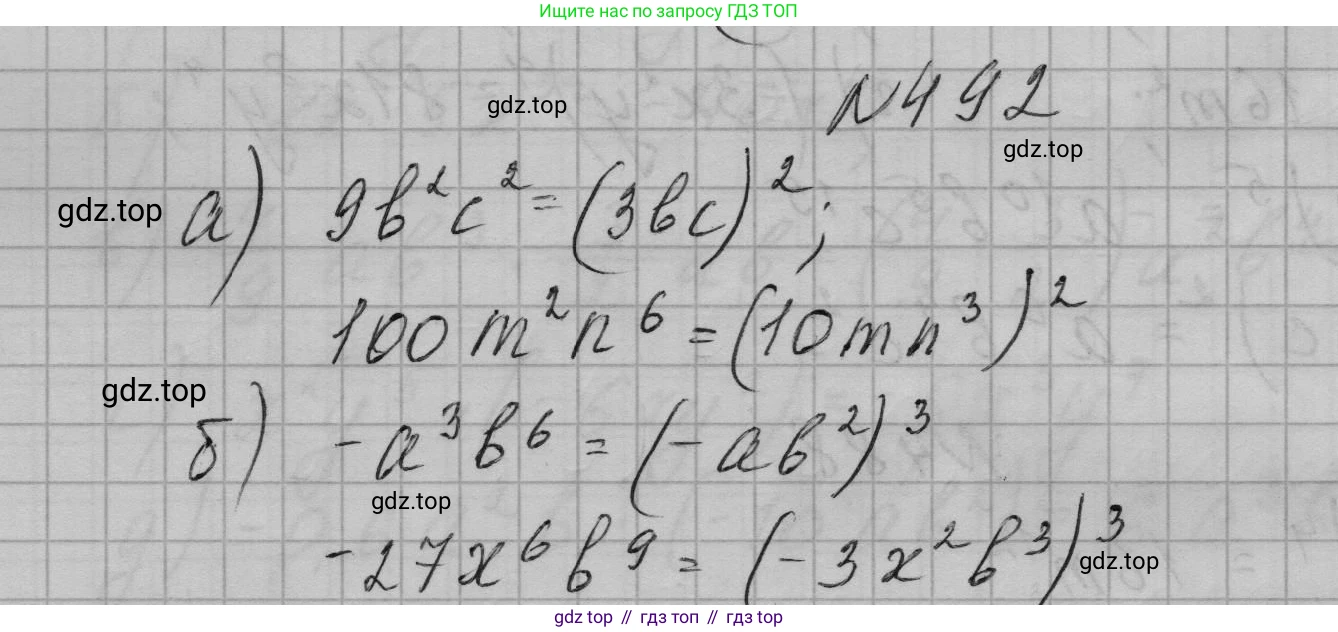 Ищите нас по запросу ГДЗ ТОП
gdz.top
N492
gdz.top
gdz.top
а) 9b²c² = (3bc)²;
100m²n⁶ = (10mn³)²
gdz.top
б) -a³b⁶ = (-ab²)³
gdz.top
-27x⁶b⁹ = (-3x²b³)³
gdz.top
gdz top // гдз топ // гдз top